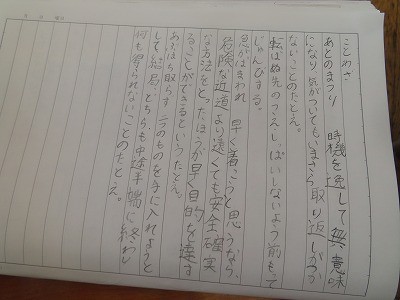 ことわざ
あとのまつり　時機を逸して無意味
になり、気がついてもいまさら取り返しがつか
ないことのたとえ。
転ばぬ先のつえ　しっぱいしないよう前もって
じゅんびする。
急がばまわれ　早く着こうと思うなら、
危険な近道より遠くても安全確実
な方法をとったほうが早く目的を達す
ることができるというたとえ。
あぶはち取らず　二つのものを手に入れようと
して、結局、どちらも中途半端に終わり
何も得られないことのたとえ。